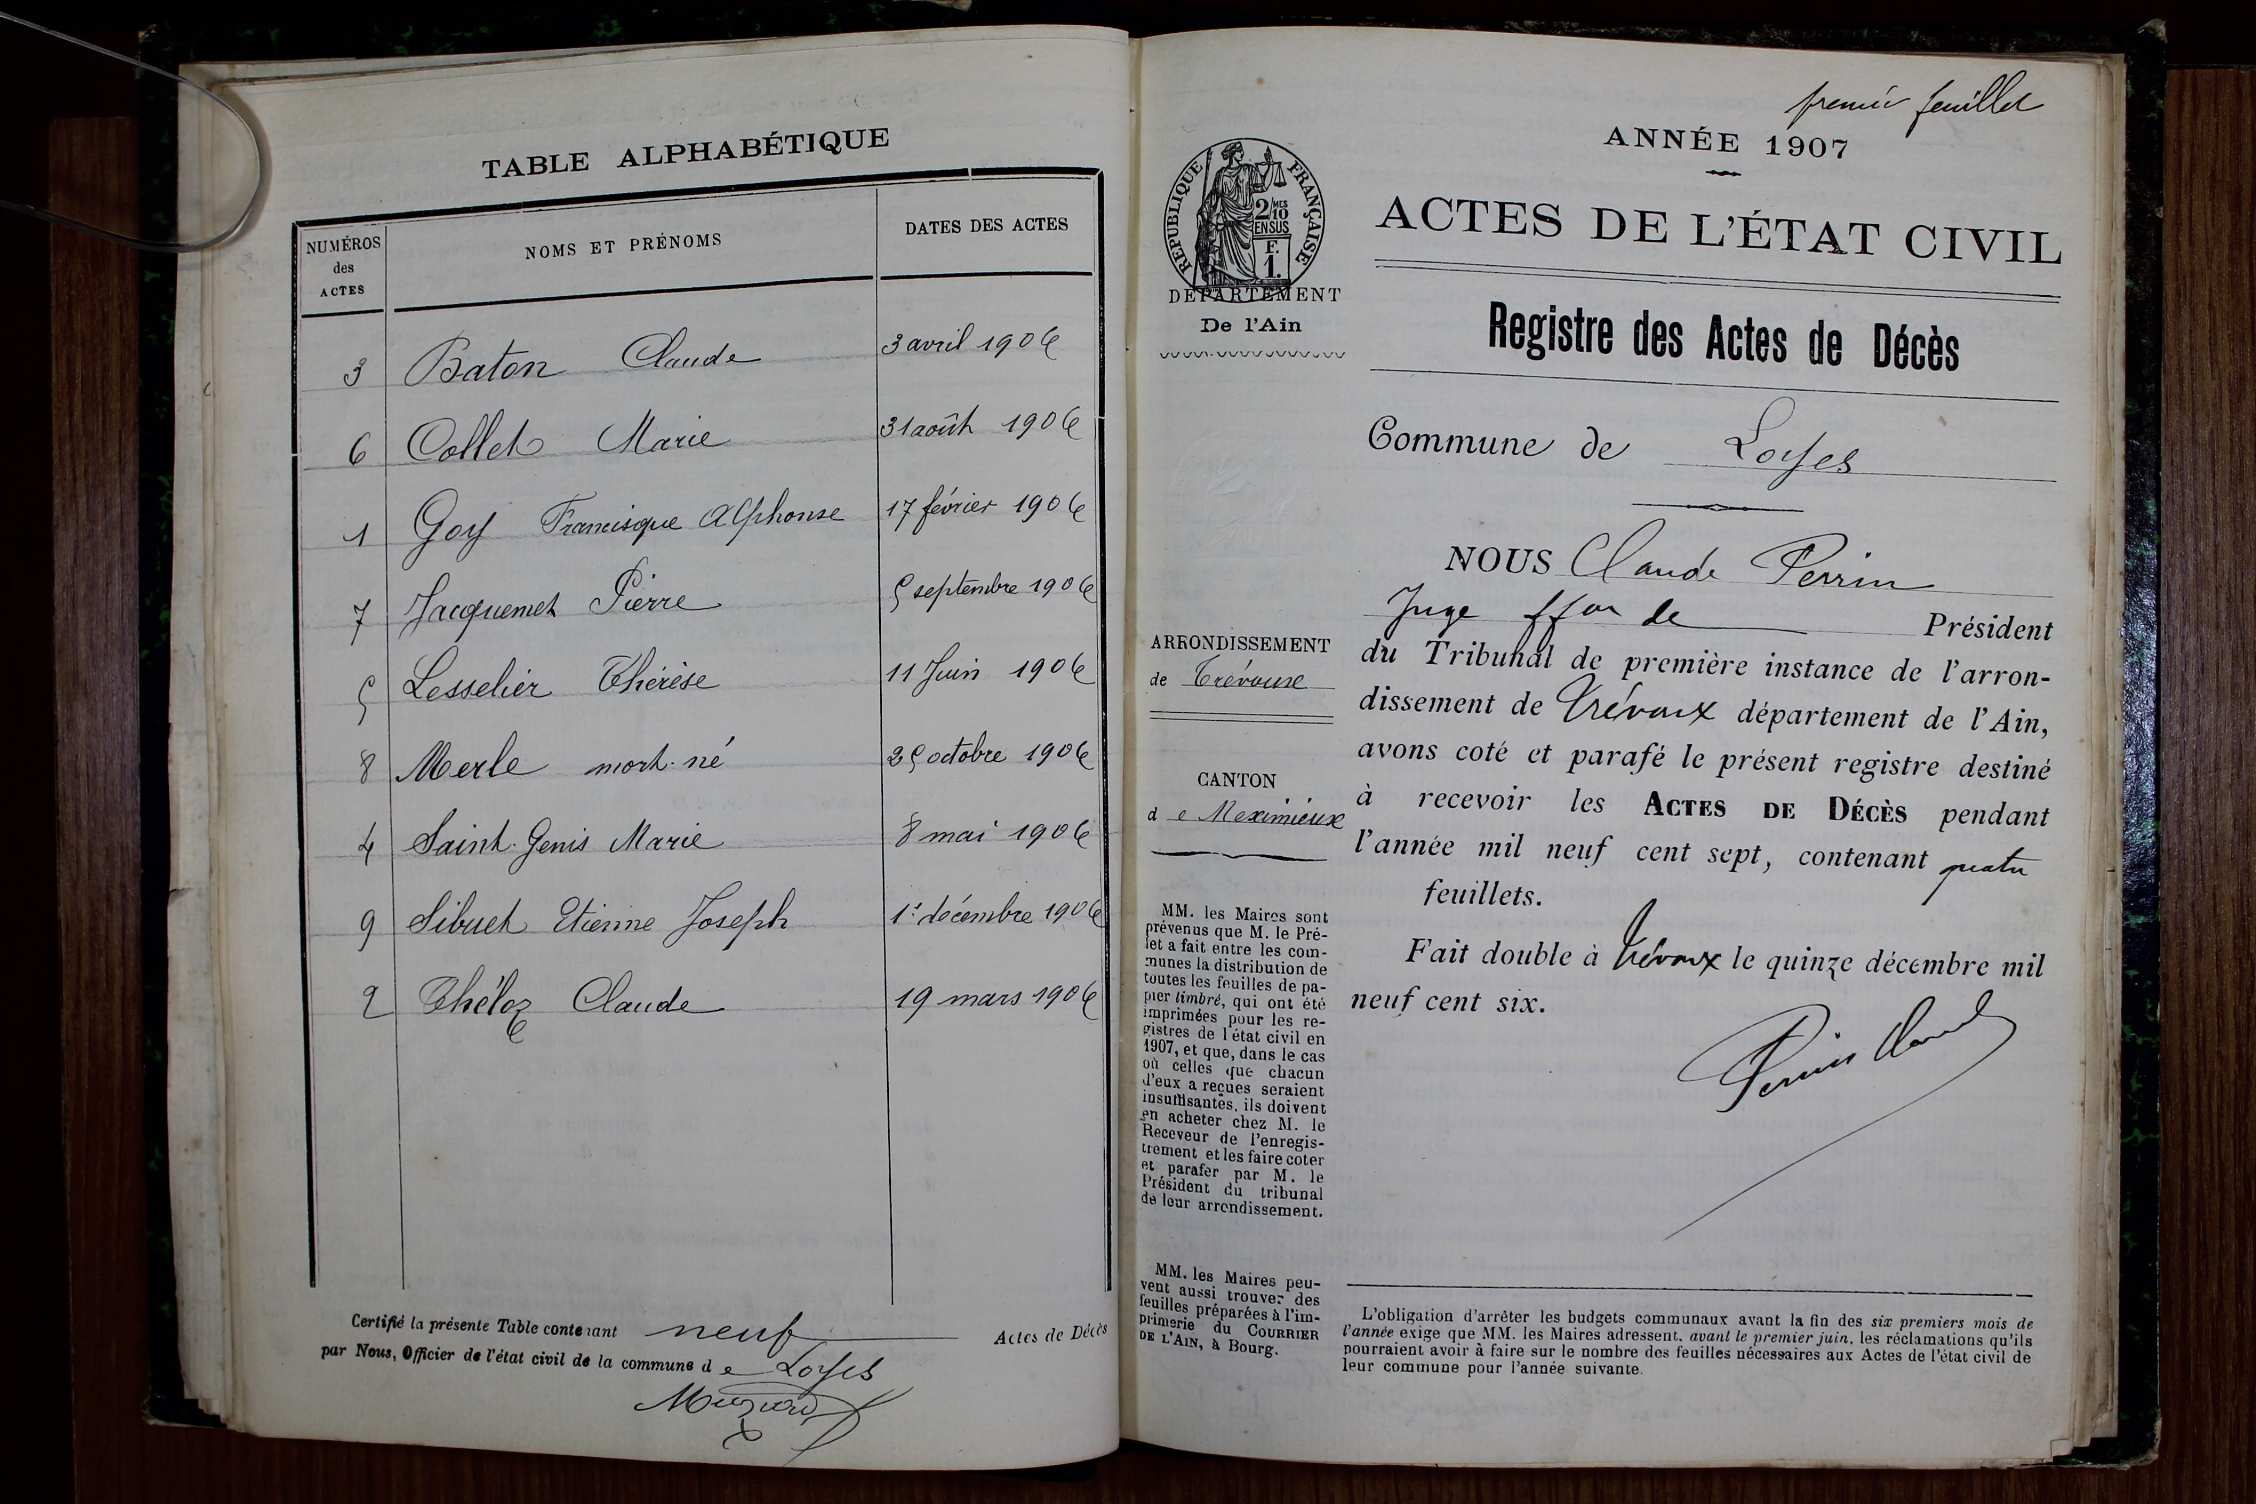 TABLE ALPHABÉTIQUE
NUMÉROS des ACTES NOMS ET PRÉNOMS DATES DES ACTES
3 Baton Claude 3 avril 1906
6 Collet Marie 31 août 1906
1 Goy Francisque Alphonse 17 février 1906
7 Jacquemet Pierre 5 septembre 1906
5 Lesselier Thérèse 11 Juin 1906
8 Merle mort-né 25 octobre 1906
4 Saint-Genis Marie 8 mai 1906
9 Sibuet Etienne Joseph 1er décembre 1906
2 Théloz Claude 19 mars 1906
Certifié la présente Table contenant neuf Actes de Décès
par Nous, Officier de l'état civil de la commune de Loyes
premier feuillet
ANNÉE 1907
RÉPUBLIQUE FRANÇAISE
2/10 MES
EN SUS
F.
1.
DÉPARTEMENT
De l'Ain
ARRONDISSEMENT
de Trévoux
CANTON
de Meximieux
MM. les Maires sont
prévenus que M. le Pré-
fet a fait entre les com-
munes la distribution de
toutes les feuilles de pa-
pier timbré, qui ont été
imprimées pour les re-
gistres de l'état civil en
1907, et que, dans le cas
où celles que chacun
d'eux a reçues seraient
insuffisantes, ils doivent
en acheter chez M. le
Receveur de l'enregis-
trement et les faire coter
et parafer par M. le
Président du tribunal
de leur arrondissement.
MM. les Maires peu-
vent aussi trouver des
feuilles préparées à l'im-
primerie du COURRIER
DE L'AIN, à Bourg.
ACTES DE L'ÉTAT CIVIL
Registre des Actes de Décès
Commune de Loyes
NOUS Claude Perrin
Juge ffon de Président
du Tribunal de première instance de l'arron-
dissement de Trévoux département de l'Ain,
avons coté et parafé le présent registre destiné
à recevoir les ACTES DE DÉCÈS pendant
l'année mil neuf cent sept, contenant quatre
feuillets.
Fait double à Trévoux le quinze décembre mil
neuf cent six.
Perrin Claude
L'obligation d'arrêter les budgets communaux avant la fin des six premiers mois de
l'année exige que MM. les Maires adressent, avant le premier juin, les réclamations qu'ils
pourraient avoir à faire sur le nombre des feuilles nécessaires aux Actes de l'état civil de
leur commune pour l'année suivante.